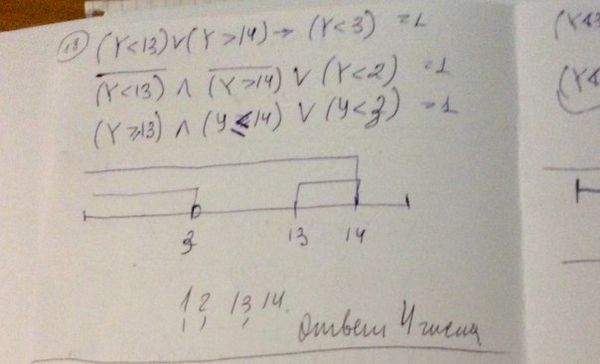 18 (Y<13)∨(Y>14)→(Y<3) =1
(Y<13) ∧ (Y>14) ∨ (Y<2) =1
(Y≥13) ∧ (Y≤14) ∨ (Y<3) =1
3 13 14
1 2, 13, 14.
Ответ 4 числа